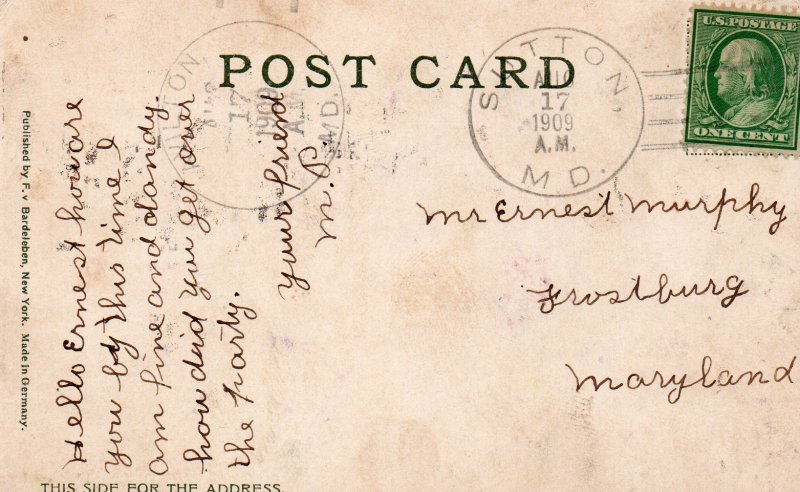 POST CARD
U.S. POSTAGE
ONE CENT
SHTTON,
AUG
17
1909
A.M.
MD.
17
1909
A.M.
MD.
Hello Ernest how are
you by this time I
am fine and dandy
how did you get over
the party.
your friend
M.P.
Mr Ernest Murphy
Frostburg
Maryland
Published by F. v Bardeleben, New York. Made in Germany.
THIS SIDE FOR THE ADDRESS.